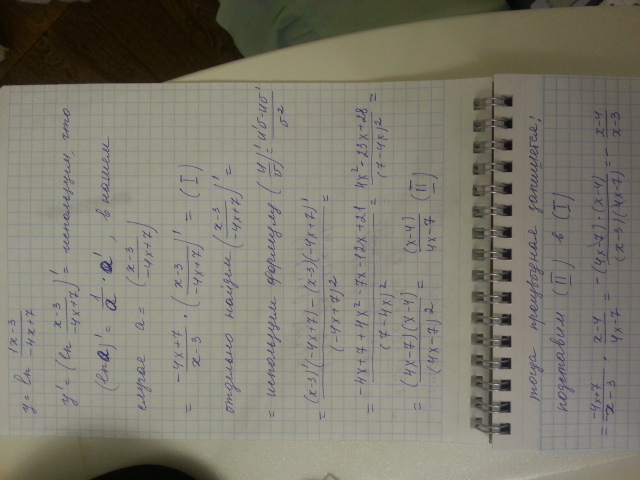 y = ln (x-3)/(-4x+7)
y' = (ln (x-3)/(-4x+7))' = используем, что
(ln a)' = 1/a · a', в нашем
случае a = ((x-3)/(-4x+7))
= (-4x+7)/(x-3) · ((x-3)/(-4x+7))' = (I)
отдельно найдём ((x-3)/(-4x+7))' =
= используем формулу (u/v)' = (u'v-uv')/v² =
= ((x-3)'(-4x+7) - (x-3)(-4x+7)')/(-4x+7)² =
= (-4x+7+4x²-7x-12x+21)/(7-4x)² = (4x²-23x+28)/(7-4x)² =
= ((4x-7)(x-4))/(4x-7)² = (x-4)/(4x-7) (II)
тогда производная запишется:
подставим (II) в (I)
= (-4x+7)/(x-3) · (x-4)/(4x-7) = (-(4x-7)·(x-4))/((x-3)(4x-7)) = - (x-4)/(x-3)